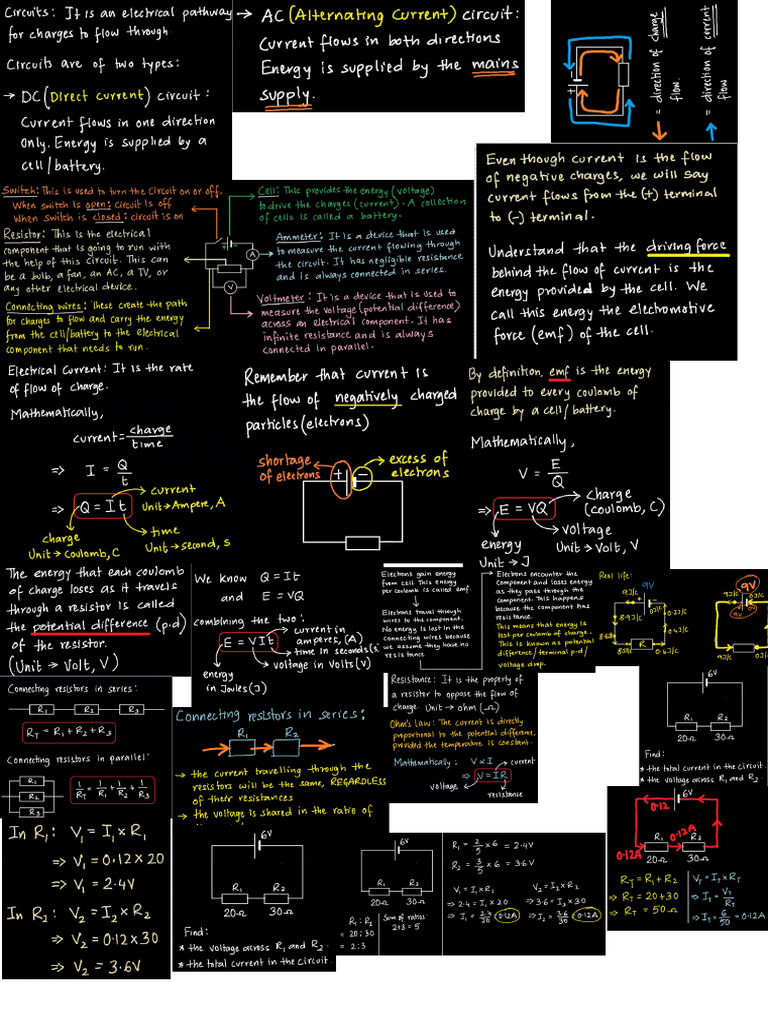 Circuits: It is an electrical pathway
for charges to flow through.
Circuits are of two types:
→ DC (Direct current) circuit:
Current flows in one direction
only. Energy is supplied by a
cell/battery.
→ AC (Alternating Current) circuit:
Current flows in both directions
Energy is supplied by the mains
supply.
= direction of charge
flow.
= direction of current
flow
Switch: This is used to turn the circuit on or off.
When switch is open: circuit is off
When switch is closed: circuit is on
Resistor: This is the electrical
component that is going to run with
the help of this circuit. This can
be a bulb, a fan, an AC, a TV, or
any other electrical device.
Connecting wires: These create the path
for charges to flow and carry the energy
from the cell/battery to the electrical
component that needs to run.
A
V
Cell: This provides the energy (voltage)
to drive the charges (current). A collection
of cells is called a battery.
Ammeter: It is a device that is used
to measure the current flowing through
the circuit. It has negligible resistance
and is always connected in series.
Voltmeter: It is a device that is used to
measure the voltage (potential difference)
across an electrical component. It has
infinite resistance and is always
connected in parallel.
Even though current is the flow
of negative charges, we will say
current flows from the (+) terminal
to (-) terminal.
Understand that the driving force
behind the flow of current is the
energy provided by the cell. We
call this energy the electromotive
force (emf) of the cell.
Electrical Current: It is the rate
of flow of charge.
Mathematically,
current = charge/time
⇒ I = Q/t
⇒ Q = It
current
Unit → Ampere, A
time
Unit → second, s
charge
Unit → Coulomb, C
Remember that current is
the flow of negatively charged
particles (electrons)
shortage
of electrons
+
-
excess of
electrons
By definition, emf is the energy
provided to every coulomb of
charge by a cell/battery.
Mathematically,
V = E/Q
⇒ E = VQ
charge
(coulomb, C)
voltage
Unit → Volt, V
energy
Unit → J
The energy that each coulomb
of charge loses as it travels
through a resistor is called
the potential difference (p.d)
of the resistor.
(Unit → Volt, V)
We know Q = It
and E = VQ
combining the two:
E = VIt
current in
amperes, (A)
time in seconds(s)
voltage in Volts (V)
energy
in Joules (J)
Electrons gain energy
from cell. This energy
per coulomb is called emf.
Electrons travel through
wires to the component.
No energy is lost in the
connecting wires because
we assume they have no
resistance
Electrons encounter the
component and loses energy
as they pass through the
component. This happens
because the component has
resistance.
This means that energy is
lost per coulomb of charge.
This is known as potential
difference/terminal p.d/
voltage drop.
Real life:
9V
9J/C
0J/C
R
9V
9J/C
0J/C
Connecting resistors in series:
R1
R2
R3
RT = R1 + R2 + R3
Connecting resistors in parallel:
R1
R2
R3
1/RT = 1/R1 + 1/R2 + 1/R3
Connecting resistors in series:
R1
R2
→ the current travelling through the
resistors will be the same, REGARDLESS
of their resistances
→ the voltage is shared in the ratio of
Resistance: It is the property of
a resistor to oppose the flow of
charge. Unit → ohm (Ω)
Ohm's Law: The current is directly
proportional to the potential difference,
provided the temperature is constant.
Mathematically: V ∝ I
⇒ V = IR
current
voltage
resistance
6V
R1
R2
20Ω
30Ω
Find:
* the total current in the circuit.
* the voltage across R1 and R2.
In R1: V1 = I1 × R1
⇒ V1 = 0.12 × 20
⇒ V1 = 2.4V
In R2: V2 = I2 × R2
⇒ V2 = 0.12 × 30
⇒ V2 = 3.6V
6V
R1
R2
20Ω
30Ω
Find:
* the voltage across R1 and R2.
* the total current in the circuit.
6V
R1
R2
20Ω
30Ω
R1 : R2
= 20 : 30
= 2 : 3
Sum of ratios
2+3 = 5
R1 = 2/5 × 6 = 2.4V
R2 = 3/5 × 6 = 3.6V
V1 = I1 × R1
⇒ 2.4 = I1 × 20
⇒ I1 = 2.4/20 = 0.12A
V2 = I2 × R2
⇒ 3.6 = I2 × 30
⇒ I2 = 3.6/30 = 0.12A
0.12
6V
R1
0.12A
R2
0.12A
20Ω
30Ω
RT = R1 + R2
⇒ RT = 20 + 30
⇒ RT = 50Ω
VT = IT × RT
⇒ IT = VT/RT
⇒ IT = 6/50 = 0.12A